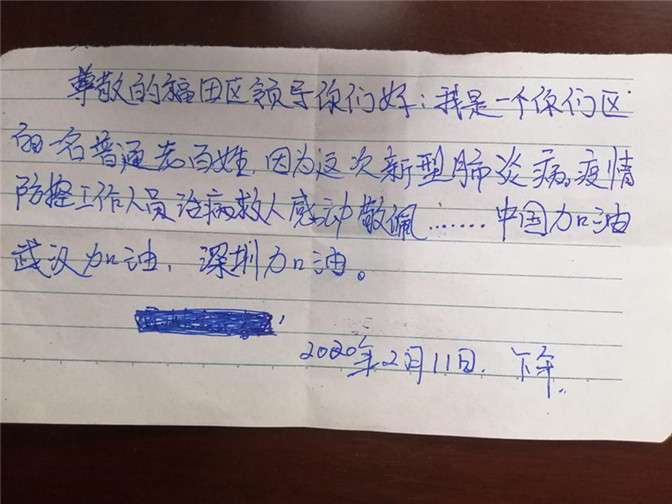 尊敬的福田区领导你们好：我是一个你们区
的一名普通老百姓，因为这次新型肺炎病，疫情
防控工作人员治病救人感动敬佩………中国加油
武汉加油，深圳加油。
2020年2月11日，下午．